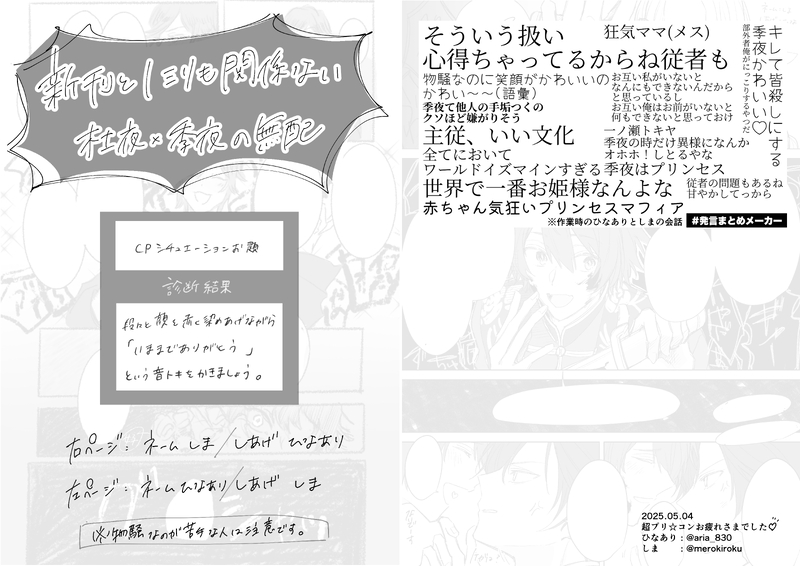 新刊と1ミリも関係ない
杜夜×季夜の無配
CPシチュエーションお題
診断結果
段々と顔を赤く染めあげながら
「いままでありがとう」
という音トキをかきましょう。
右ページ：ネーム しま/しあげ ひなあり
左ページ：ネーム ひなあり/しあげ しま
※物騒なのが苦手な人は注意です。
そういう扱い
狂気ママ(メス)
心得ちゃってるからね従者も
物騒なのに笑顔がかわいいの
かわい〜〜(語彙)
お互い私がいないと
なんにもできないんだから
と思っているし
お互い俺はお前がいないと
何もできないと思っておけ
季夜て他人の手垢つくの
クソほど嫌がりそう
主従、いい文化
一ノ瀬トキヤ
季夜の時だけ異様になんか
オホホ！しとるやな
全てにおいて
ワールドイズマインすぎる季夜はプリンセス
世界で一番お姫様なんよな
従者の問題もあるね
甘やかしてっから
赤ちゃん気狂いプリンセスマフィア
キレて皆殺しにする
季夜かわいい♡
部外者俺がにっこりするやつだ
※作業時のひなありとしまの会話
#発言まとめメーカー
2025.05.04
超プリ☆コンお疲れさまでした♡
ひなあり：@aria_830
しま　　：@merokiroku